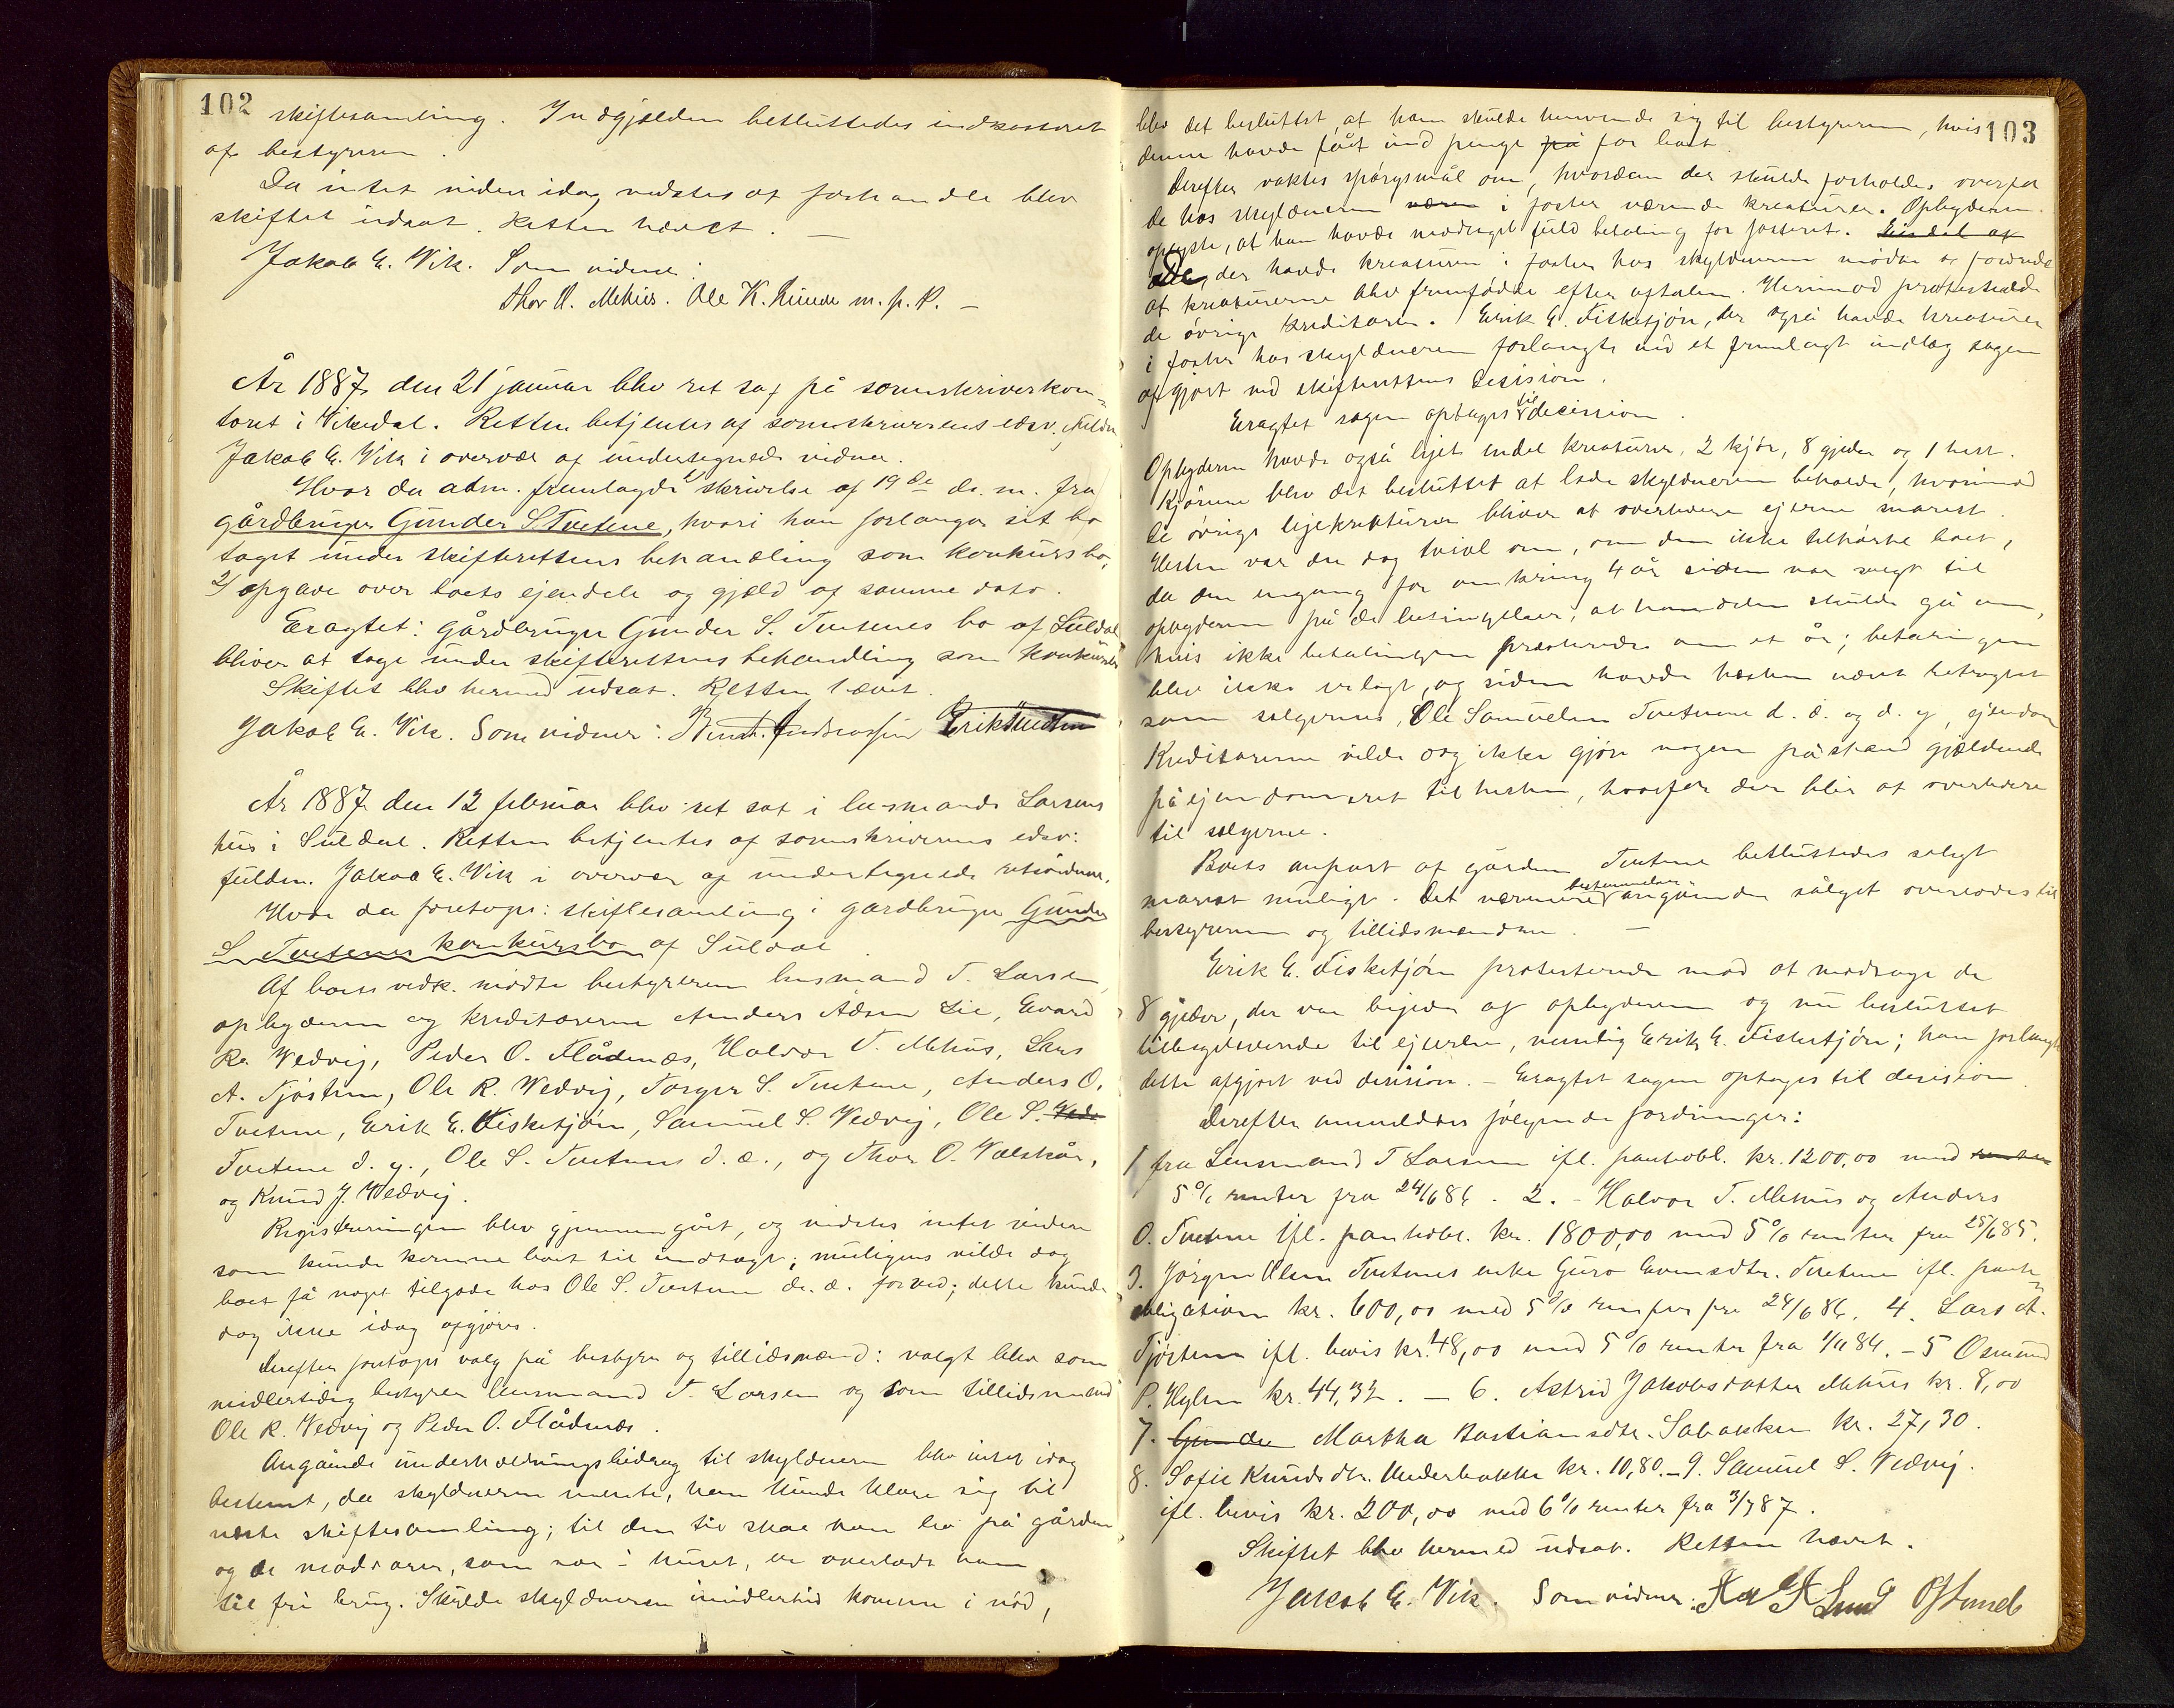 102
skiftesamling. Indgjælden besluttedes indkasseret
af bestyreren.
Da intet videre idag vidstes at forhandle blev
skiftet udsat. Retten hævet. —
Jakob E. Vik. Som vidner:
Thor H. Mehus. Ole K. Runde m. p. P. —
År 1887 den 21 januar blev ret sat på sorenskriverkon-
toret i Vikedal. Retten betjentes af sorenskriverens edsv. fuldm.
Jakob E. Vik i overvær af undertegnede vidner.
Hvor da adm. fremlagde 1) skrivelse af 19de ds. m. fra
gårdbruger Gunder S. Tvetene, hvori han forlanger sit bo
taget under skifterettens behandling som konkursbo,
2) opgave over boets ejendele og gjæld af samme dato.
Eragtet: gårdbruger Gunder S. Tvetenes bo af Suldal
bliver at tage under skifterettens behandling som konkursbo
Skiftet blev hermed udsat. Retten hævet.
Jakob E. Vik. Som vidner: Andreassen Erik
År 1887 den 12 februar blev ret sat i lensmands Larsens
hus i Suldal. Retten betjentes af sorenskriverens edsv:
fuldm. Jakob E. Vik i overvær af undertegnede retsvidner.
Hvor da foretoges: skiftesamling i gårdbruger Gunder
S. Tvetenes konkursbo af Suldal
Af boets vedk. mødte bestyreren lensmand T. Larsen,
opbyderen og kreditorerne Anders Ådsen Lie, Evard
R. Vedvig, Peder O. Flådnæs, Halvor T. Mehus, Lars
A. Tjøstem, Ole R. Vedvig, Torger S. Tvetene, Anders O.
Tvetene, Erik E. Fisketjøn, Samuel S. Vedvig, Ole S. Vedv
Tvetene d. y., Ole S. Tvetene d. æ., og Thor O. Valskår,
og Knud J. Vedvig.
Registreringen blev gjennemgået, og vidstes intet videre
som kunde komme boet til indtægt; muligens vilde dog
boet få noget tilgode hos Ole S. Tvetene d. æ. for ved; dette kunde
dog ikke idag afgjøres.
Derefter foretoges valg på bestyrer og tillidsmænd: valgt blev som
midlertidig bestyrer lensmand T. Larsen og som tillidsmænd
Ole R. Vedvig og Peder O. Flådnæs.
Angående underholdningsbidrag til skyldneren blev intet idag
bestemt, da skyldneren mente, han kunde klare sig til
næste skiftesamling; til den tid skal han bo på gården
og de madvarer, som var i huset, er overladt ham
til fri brug. Skulde skyldneren imidlertid komme i nød,
103
blev det besluttet, at han skulde henvende sig til bestyreren, hvis
denne havde fået ind penge på for boet.
Derefter vaktes spørgsmål om, hvordan der skulde forholdes overfor
de hos skyldneren være i foster værende kreaturer. Opbyderen
oplyste, at han havde modtaget fuld betaling for fosteret. En del af
De, der havde kreaturer i foster hos skyldneren mødte og fordrede
at kreaturerne blev fremfødde efter aftalen. Herimod protesterede
de øvrige kreditorer. Erik E. Fisketjøn, der også havde kreaturer
i foster hos skyldneren forlangte ved et fremlagt indlæg sagen
afgjort ved skifterettens decision.
Eragtet sagen optages til decision.
Opbyderen havde også lejet endel kreaturer, 2 kjør, 8 gjeder og 1 hest.
Kjørene blev det besluttet at lade skyldneren beholde, hvorimod
de øvrige lejekreaturer bliver at overlevere ejerne snarest.
Hesten var der dog tvivl om, om den ikke tilhørte boet,
da den engang for omkring 4 år siden var solgt til
opbyderen på de betingelser, at handelen skulde gå om,
hvis ikke betalingen præsteredes om et år; betalingen
blev ikke erlagt, og siden havde hesten været betragtet
som selgernes, Ole Samuelsen Tvetene d. æ. og d. y., ejendom
Kreditorerne vilde dog ikke gjøre nogen påstand gjældende
på ejendomsret til hesten, hvorfor den blir at overlevere
til selgerne.
Boets anpart af gården Tvetene besluttedes solgt
snarest muligt. Det nærmere bestemmelser angående salget overlodes til
bestyreren og tillidsmændene. —
Erik E. Fisketjøn protesterede mod at modtage de
8 gjeder, der var lejede af opbyderen og nu besluttet
tilbageleverede til ejeren, nemlig Erik E. Fisketjøn; han forlangte
dette afgjort ved decision. – Eragtet sagen optages til decision.
Derefter anmeldtes følgende fordringer:
1 fra Lensmand T Larsen ifl. pantobl. kr. 1200,00 med renter
5% renter fra 24/6 86. 2. – Halvor T. Mehus og Anders
O. Tvetene ifl. pantobl. kr. 1800,00 med 5% renter fra 25/6 85.
3. Jørgen Olsen Tvetenes enke Guro Evensdtr. Tvetene ifl. pant-
obligation kr. 600,00 med 5% renter fra 24/6 86. 4. Lars A.
Tjøstem ifl. bevis kr. 48,00 med 5% renter fra 1/11 84. – 5 Osmund
P. Hylen kr. 44,32. — 6. Astrid Jakobsdatter Mehus kr. 8,00
7. Gunder Martha Bastiansdtr. Sabakken kr. 27,30.
8. Sofie Knudsdtr. Underbakke kr. 10,80. – 9. Samuel S. Vedvig.
ifl. bevis kr. 200,00 med 6% renter fra 3/1 87.
Skiftet blev hermed udsat. Retten hævet.
Jakob E. Vik. Som vidner: Lund